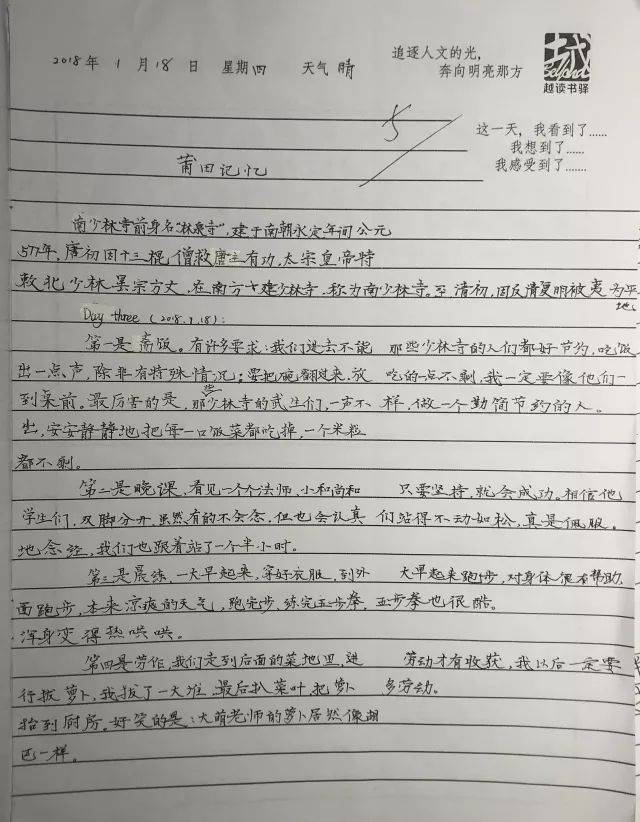 2018年 1月18日 星期四 天气 晴
追逐人文的光,
奔向明亮那方
越读书驿
这一天, 我看到了......
我想到了......
我感受到了......
莆田记忆
南少林寺前身名“林泉寺”,建于南朝永定年间公元
577年,唐初因十三棍僧救唐王有功,太宗皇帝特
敕北少林昙宗方丈,在南方十建少林寺,称为南少林寺。至清初,因反清复明被夷为平
地。
Day three (2018.1.18):
第一是斋饭。有许多要求:我们进去不能 那些少林寺的人们都好节约,吃饭
出一点声,除非有特殊情况;要把碗翻过来,放 吃的一点不剩,我一定要像他们一
到桌前。最厉害的是,那些少林寺的武生们,一声不 样,做一个勤简节约的人。
出,安安静静地把每一口饭菜都吃掉,一个米粒
都不剩。
第二是晚课,看见一个个法师,小和尚和 只要坚持,就会成功。相信他
学生们,双脚分开,虽然有的不会念,但也会认真 们站得不动如松,真是佩服。
地念经,我们也跟着站了一个半小时。
第三是晨练,一大早起来,穿好衣服,到外 大早起来跑步,对身体很有帮助,
面跑步,本来凉爽的天气,跑完步,练完五步拳, 五步拳也很酷。
浑身变得热哄哄。
第四是劳作,我们走到后面的菜地里,进 劳动才有收获,我以后一定要
行拔萝卜,我拔了一大堆,最后扒菜叶,把萝卜 多劳动。
抬到厨房。好笑的是:大萌老师的萝卜居然像胡
巴一样。